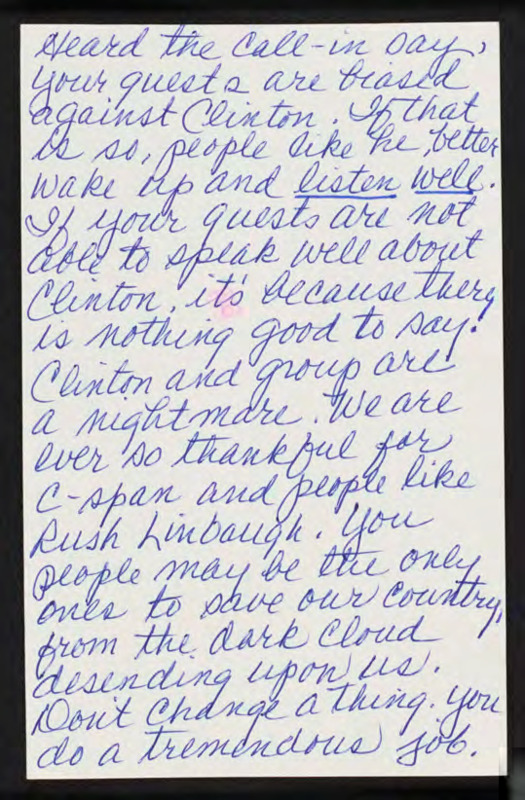 Heard the call-in say,
your guests are biased
against Clinton. If that
is so, people like he, better
wake up and listen well.
If your guests are not
able to speak well about
Clinton, it's because they
is nothing good to say.
Clinton and group are
a nightmare. We are
ever so thankful for
C-span and people like
Rush Linbaugh. You
people may be the only
ones to save our country,
from the dark cloud
desending upon us.
Don't change a thing. you
do a tremendous job.